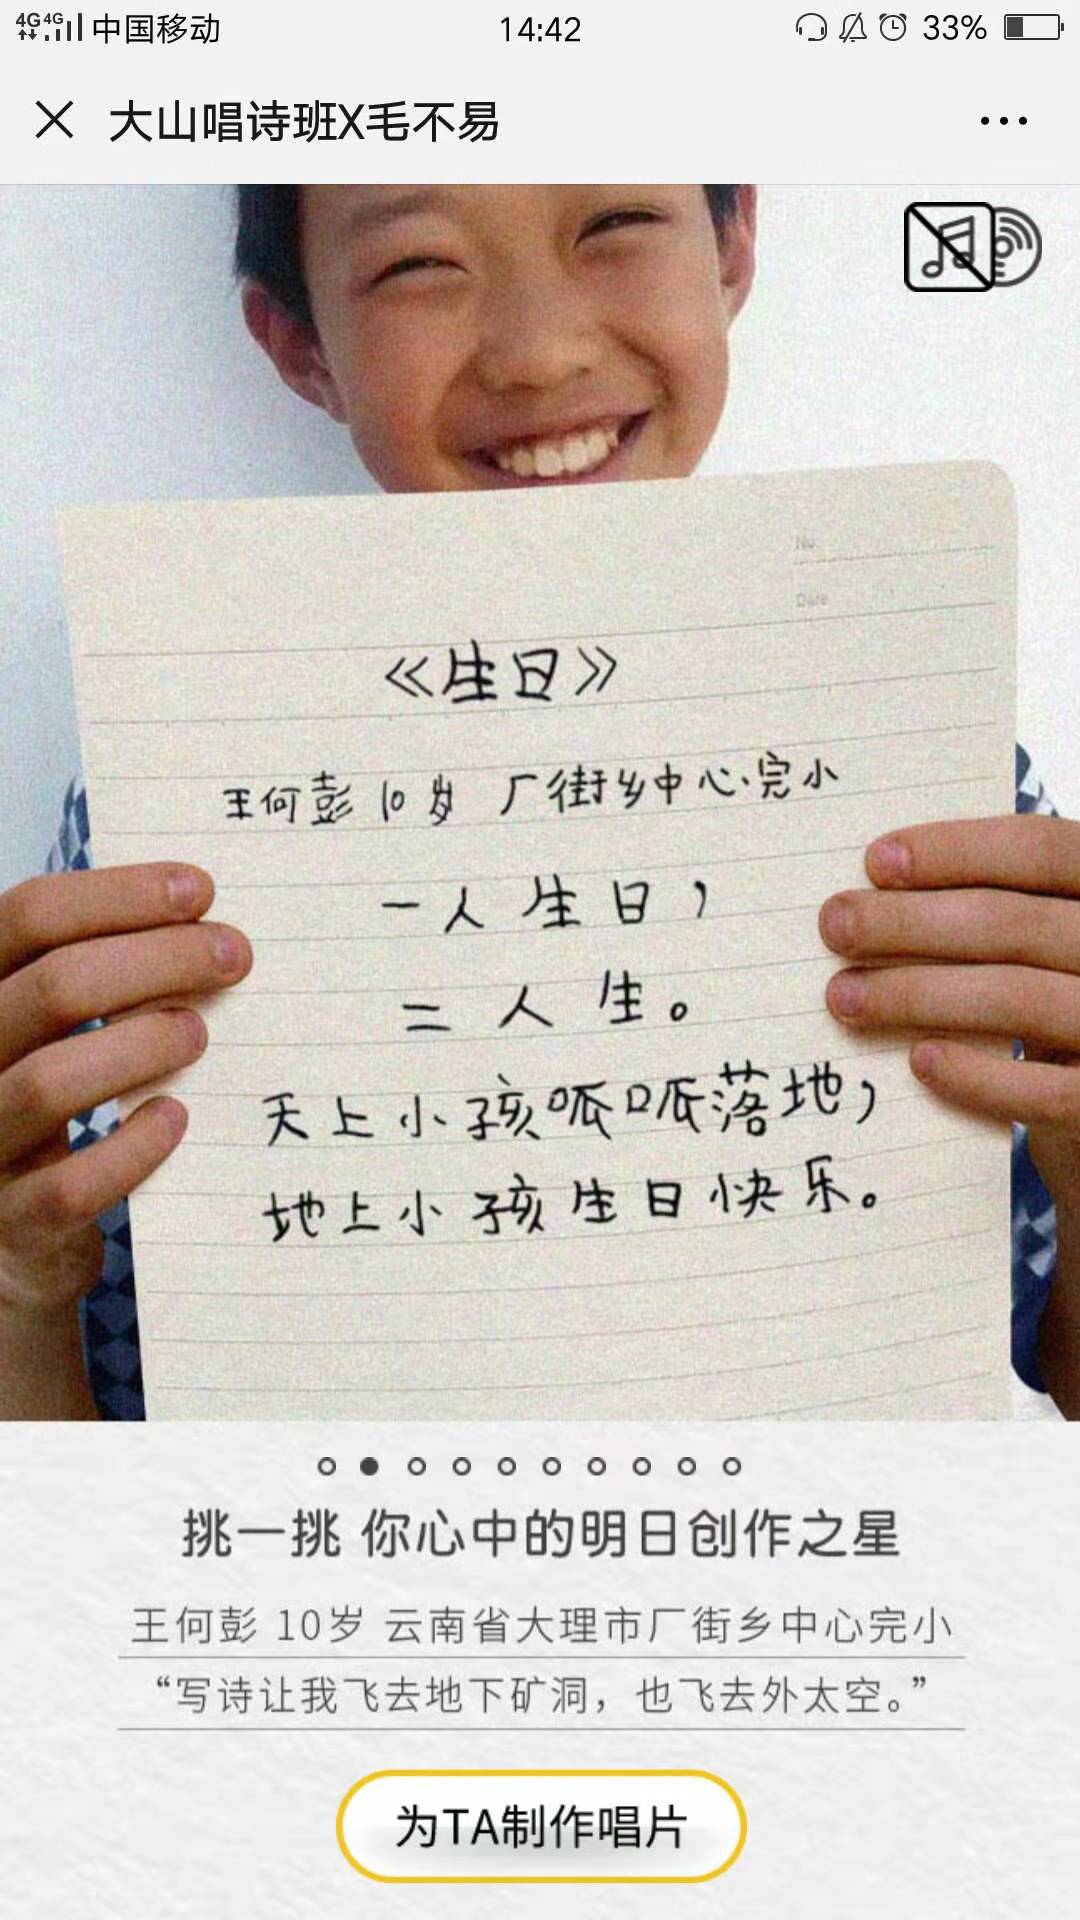 4G 4G 中国移动 14:42 33%
大山唱诗班X毛不易
No.
Date
《生日》
王何彭 10岁 厂街乡中心完小
一人生日，
二人生。
天上小孩呱呱落地，
地上小孩生日快乐。
挑一挑 你心中的明日创作之星
王何彭 10岁 云南省大理市厂街乡中心完小
“写诗让我飞去地下矿洞，也飞去外太空。”
为TA制作唱片